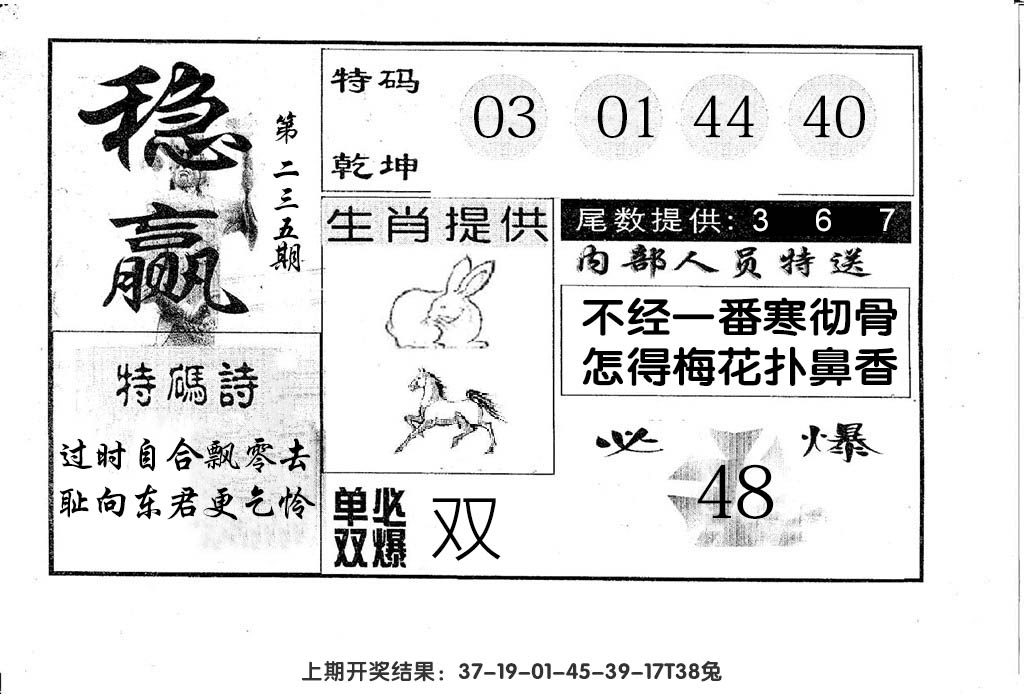 稳赢
第二三五期
特码
乾坤
03 01 44 40
特碼詩
过时自合飘零去
耻向东君更乞怜
生肖提供
单双必爆
双
尾数提供: 3 6 7
内部人员特送
不经一番寒彻骨
怎得梅花扑鼻香
必爆
48
上期开奖结果：37-19-01-45-39-17T38兔